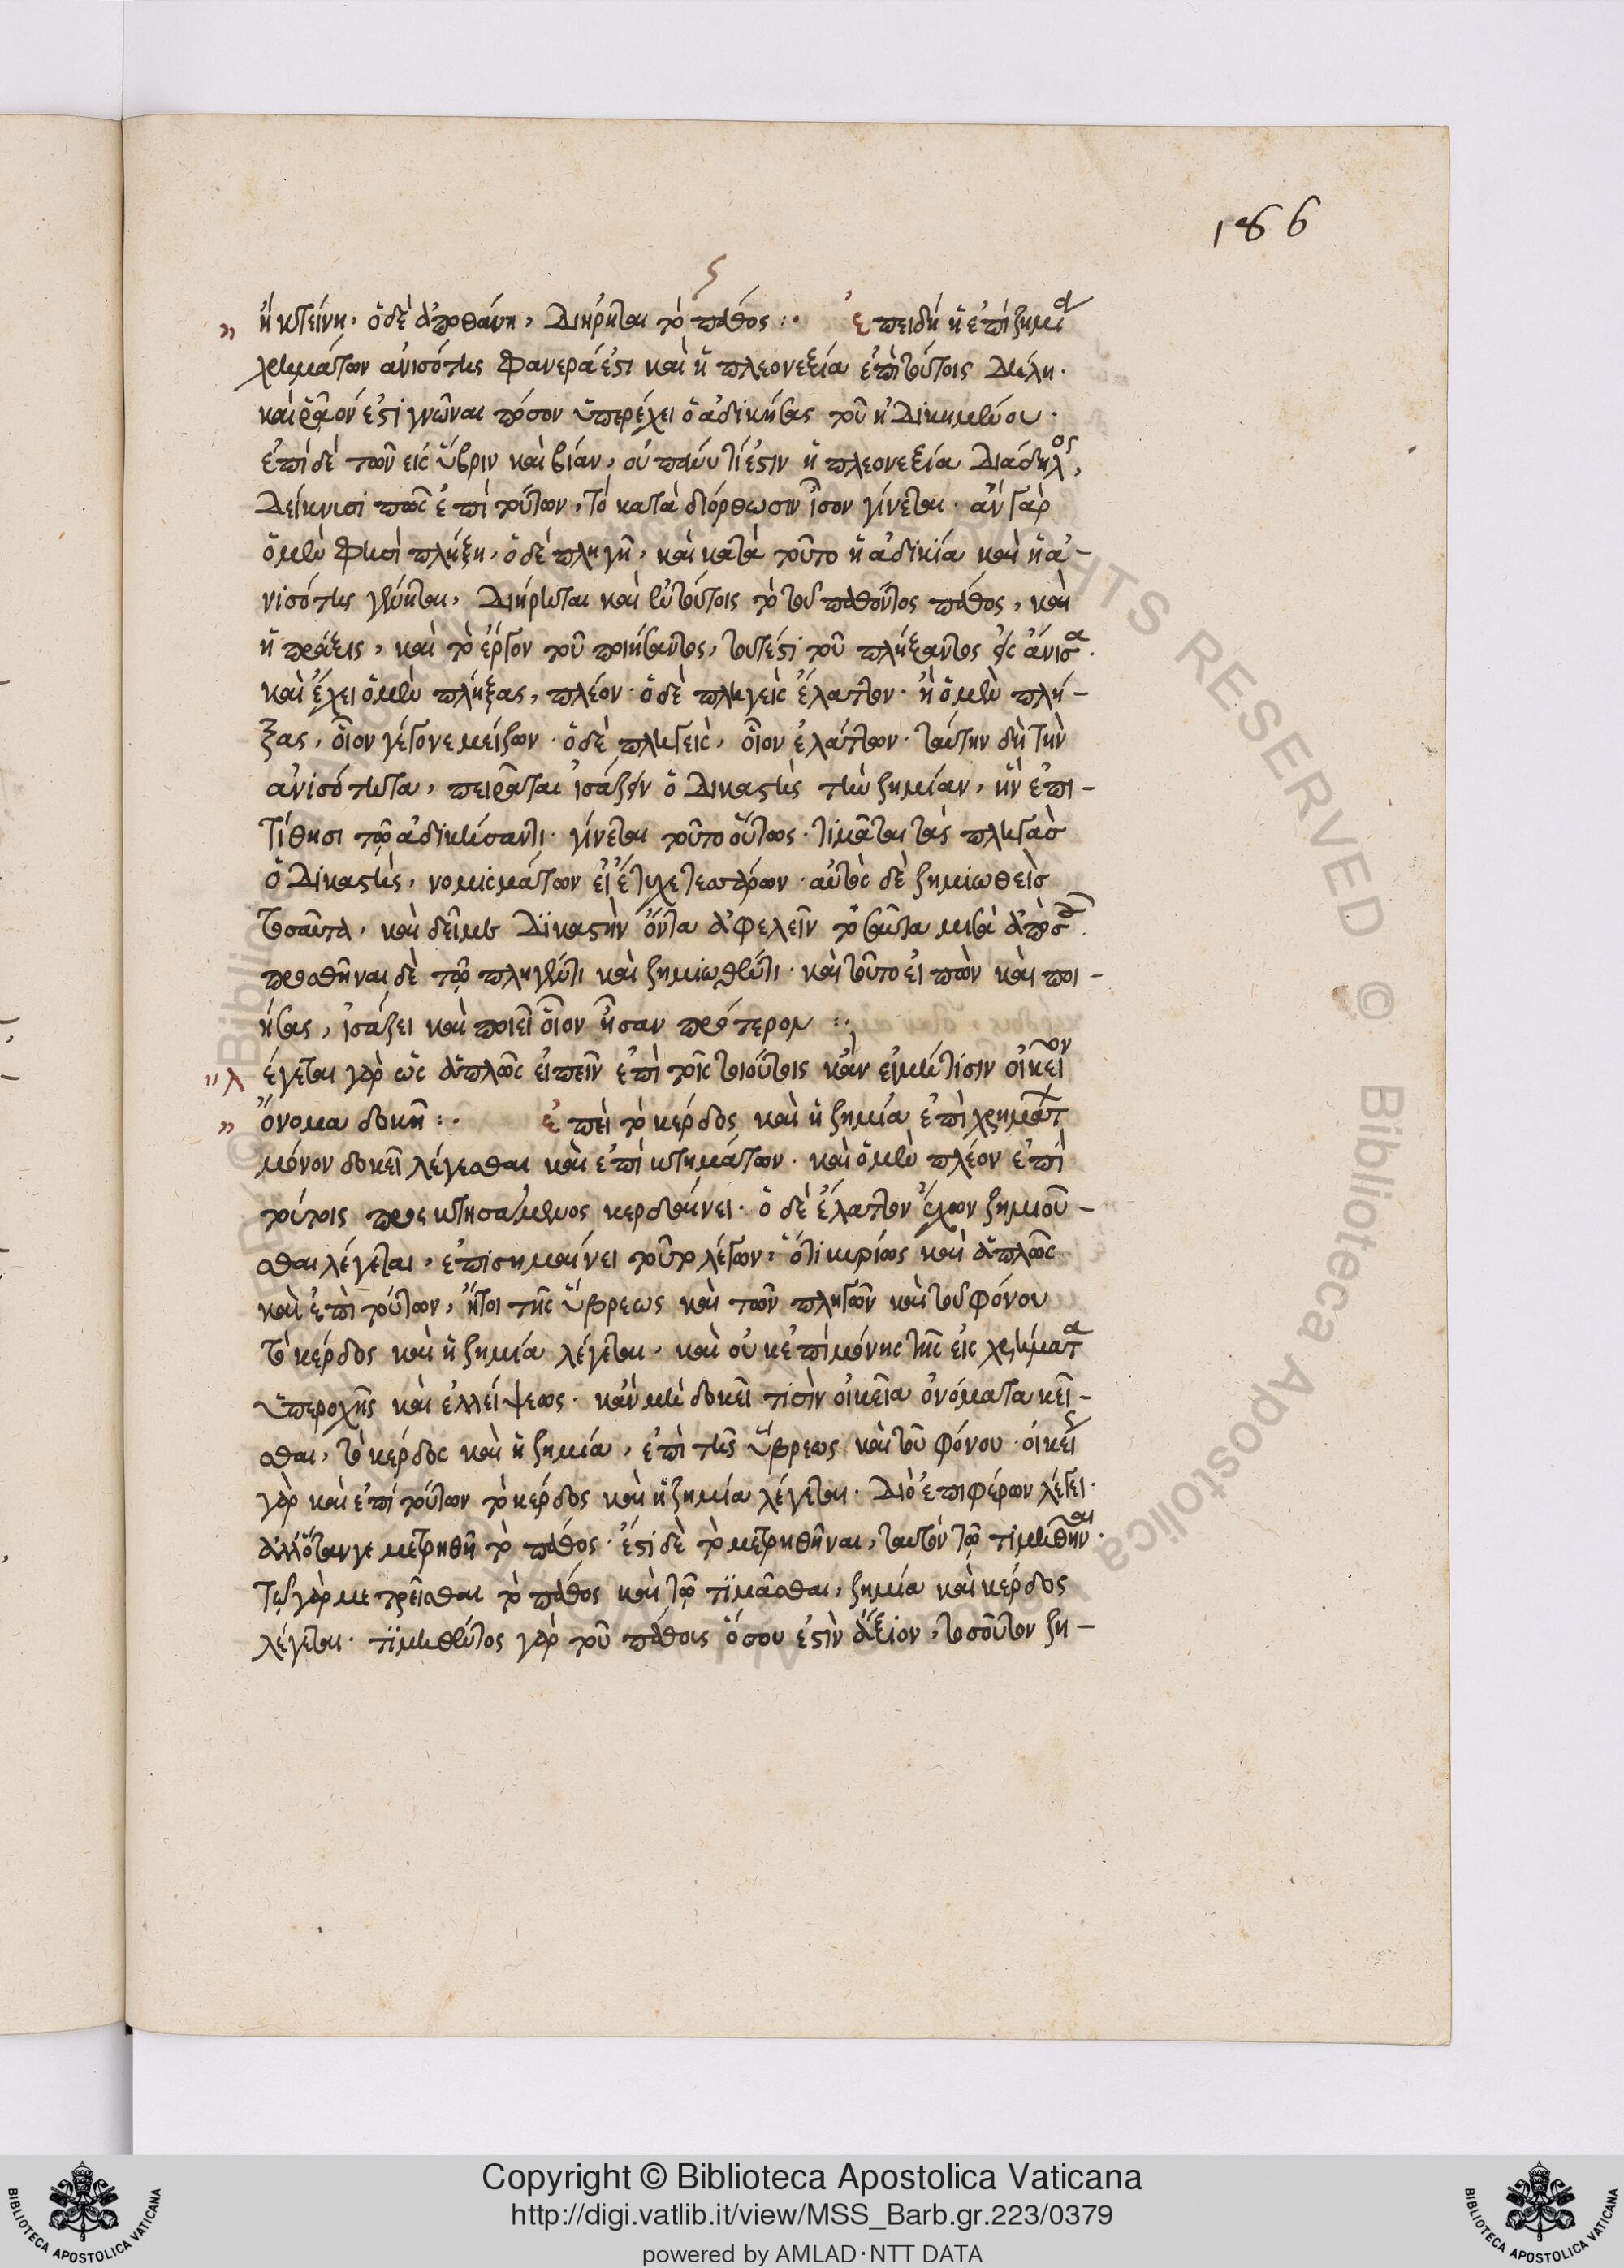 186
ς
" ἢ κτείνῃ, ὁ δὲ ἀποθάνῃ, διῄρηται τὸ πάθος :· ἐπειδὴ ἡ ἐπὶ ζημία
χρημάτων ἀνισότης φανερά ἐστι καὶ ἡ πλεονεξία ἐπὶ τούτοις δήλη·
καὶ ῥᾷόν ἐστι γνῶναι πόσον ὑπερέχει ὁ ἀδικήσας τοῦ ἠδικημένου·
ἐπὶ δὲ τῶν εἰς ὕβριν καὶ βίαν, οὐ πάνυ τί ἐστιν ἡ πλεονεξία διάδηλος,
δείκνυσι πῶς ἐπὶ τούτων, τὸ κατὰ διόρθωσιν ἴσον γίνεται· ἂν γὰρ
ὁ μὲν φησὶ πλήξῃ, ὁ δὲ πληγῇ, καὶ κατὰ τοῦτο ἡ ἀδικία καὶ ἡ ἀ-
νισότης γένηται, διῄρηται καὶ ἐν τούτοις τὸ τοῦ παθόντος πάθος, καὶ
ἡ πρᾶξις, καὶ τὸ ἔργον τοῦ ποιήσαντος, τουτέστι τοῦ πλήξαντος εἰς ἄνισα.
καὶ ἔχει ὁ μὲν πλήξας, πλέον· ὁ δὲ πληγεὶς ἔλαττον· ἢ ὁ μὲν πλή-
ξας, οἷον γέγονε μείζων· ὁ δὲ πληγεὶς, οἷον ἐλάττων· ταύτην δὴ τὴν
ἀνισότητα, πειρᾶται ἰσάζειν ὁ δικαστὴς τὴν ζημίαν, ἣν ἐπι-
τίθησι τῷ ἀδικήσαντι· γίνεται τοῦτο οὕτως· τιμᾶται τὰς πληγὰς
ὁ δικαστὴς, νομισμάτων εἰ ἔτυχε τεσσάρων· αὐτὸς δὲ ζημιωθεὶς
τοσαῦτα, καὶ δεῖ μὲν δικαστὴν ὄντα ἀφελεῖν τοσαῦτα
προσθῆναι δὲ τῷ πληγέντι καὶ ζημιωθέντι· καὶ τοῦτο εἰπὼν καὶ ποι-
ήσας, ἰσάζει καὶ ποιεῖ οἷον ἦσαν πρότερον :·
" λέγεται γὰρ ὡς ἁπλῶς εἰπεῖν ἐπὶ τοῖς τοιούτοις κἂν εἰ μή τισιν οἰκεῖον
" ὄνομα δοκῇ :· ἐπεὶ τὸ κέρδος καὶ ἡ ζημία ἐπὶ χρημάτων
μόνον δοκεῖ λέγεσθαι καὶ ἐπὶ κτημάτων· καὶ ὁ μὲν πλέον ἐπὶ
τούτοις προσκτησάμενος κερδαίνει· ὁ δὲ ἔλαττον ἔχων ζημιοῦ-
σθαι λέγεται, ἐπισημαίνει τοῦτο λέγων· ὅτι κυρίως καὶ ἁπλῶς
καὶ ἐπὶ τούτων, ἤτοι τῆς ὕβρεως καὶ τῶν πληγῶν καὶ τοῦ φόνου
τὸ κέρδος καὶ ἡ ζημία λέγεται, καὶ οὐκ ἐπὶ μόνης τῆς εἰς χρήματα
ὑπεροχῆς καὶ ἐλλείψεως· κἂν μὴ δοκεῖ τισὶν οἰκεῖα ὀνόματα κεῖ-
σθαι, τὸ κέρδος καὶ ἡ ζημία, ἐπὶ τῆς ὕβρεως καὶ τοῦ φόνου· οἰκείως
γὰρ καὶ ἐπὶ τούτων τὸ κέρδος καὶ ἡ ζημία λέγεται. διὸ ἐπιφέρων λέγει·
ἀλλ' ὅταν γε μετρηθῇ τὸ πάθος· ἔστι δὲ τὸ μετρηθῆναι, ταυτὸν τῷ τιμηθῆναι·
τῷ γὰρ μετρεῖσθαι τὸ πάθος καὶ τῷ τιμᾶσθαι, ζημία καὶ κέρδος
λέγεται· τιμηθέντος γὰρ τοῦ πάθους ὅσου ἐστὶν ἄξιον, τοσοῦτον ζη-
Copyright © Biblioteca Apostolica Vaticana
http://digi.vatlib.it/view/MSS_Barb.gr.223/0379
powered by AMLAD·NTT DATA